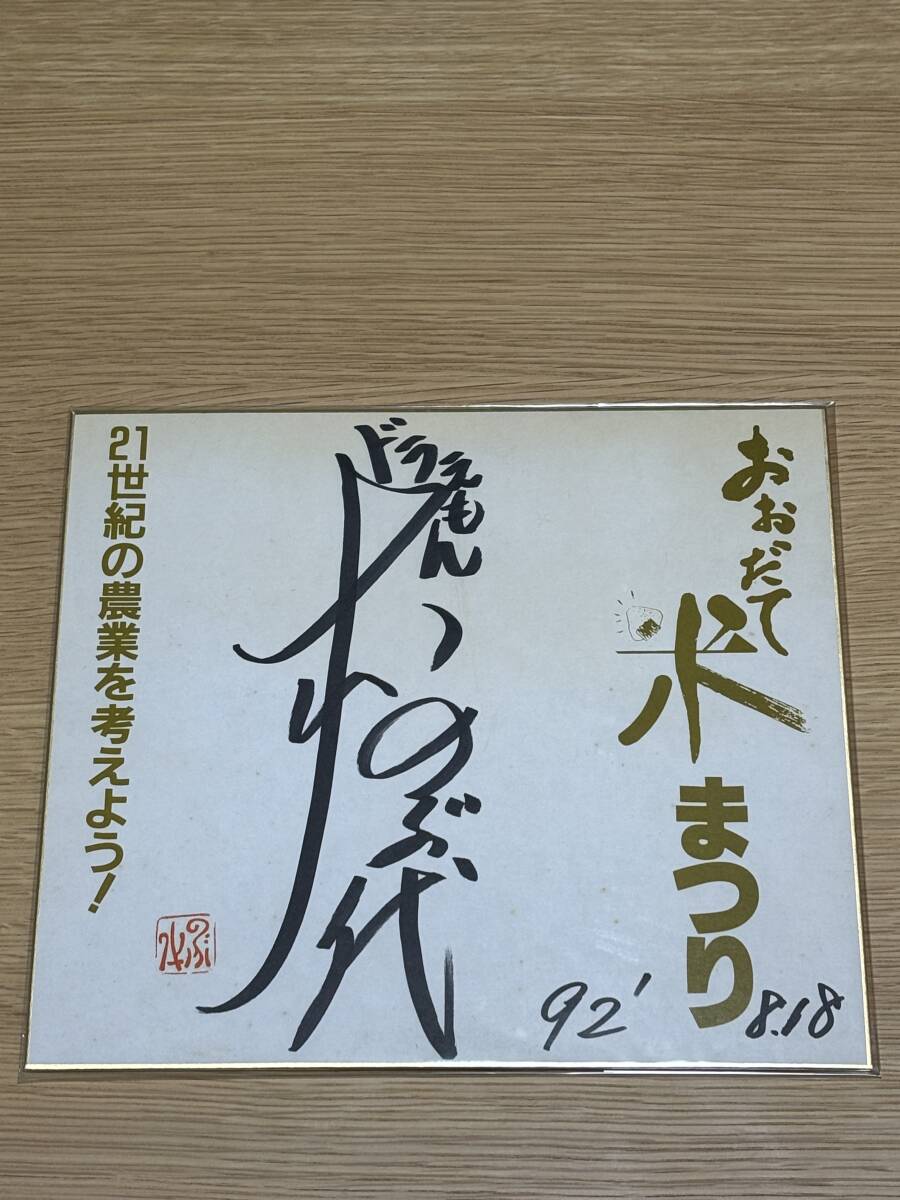 おおだて
米
まつり
ドラえもん
大山のぶ代
92' 8.18
21世紀の農業を考えよう!
のぶ代